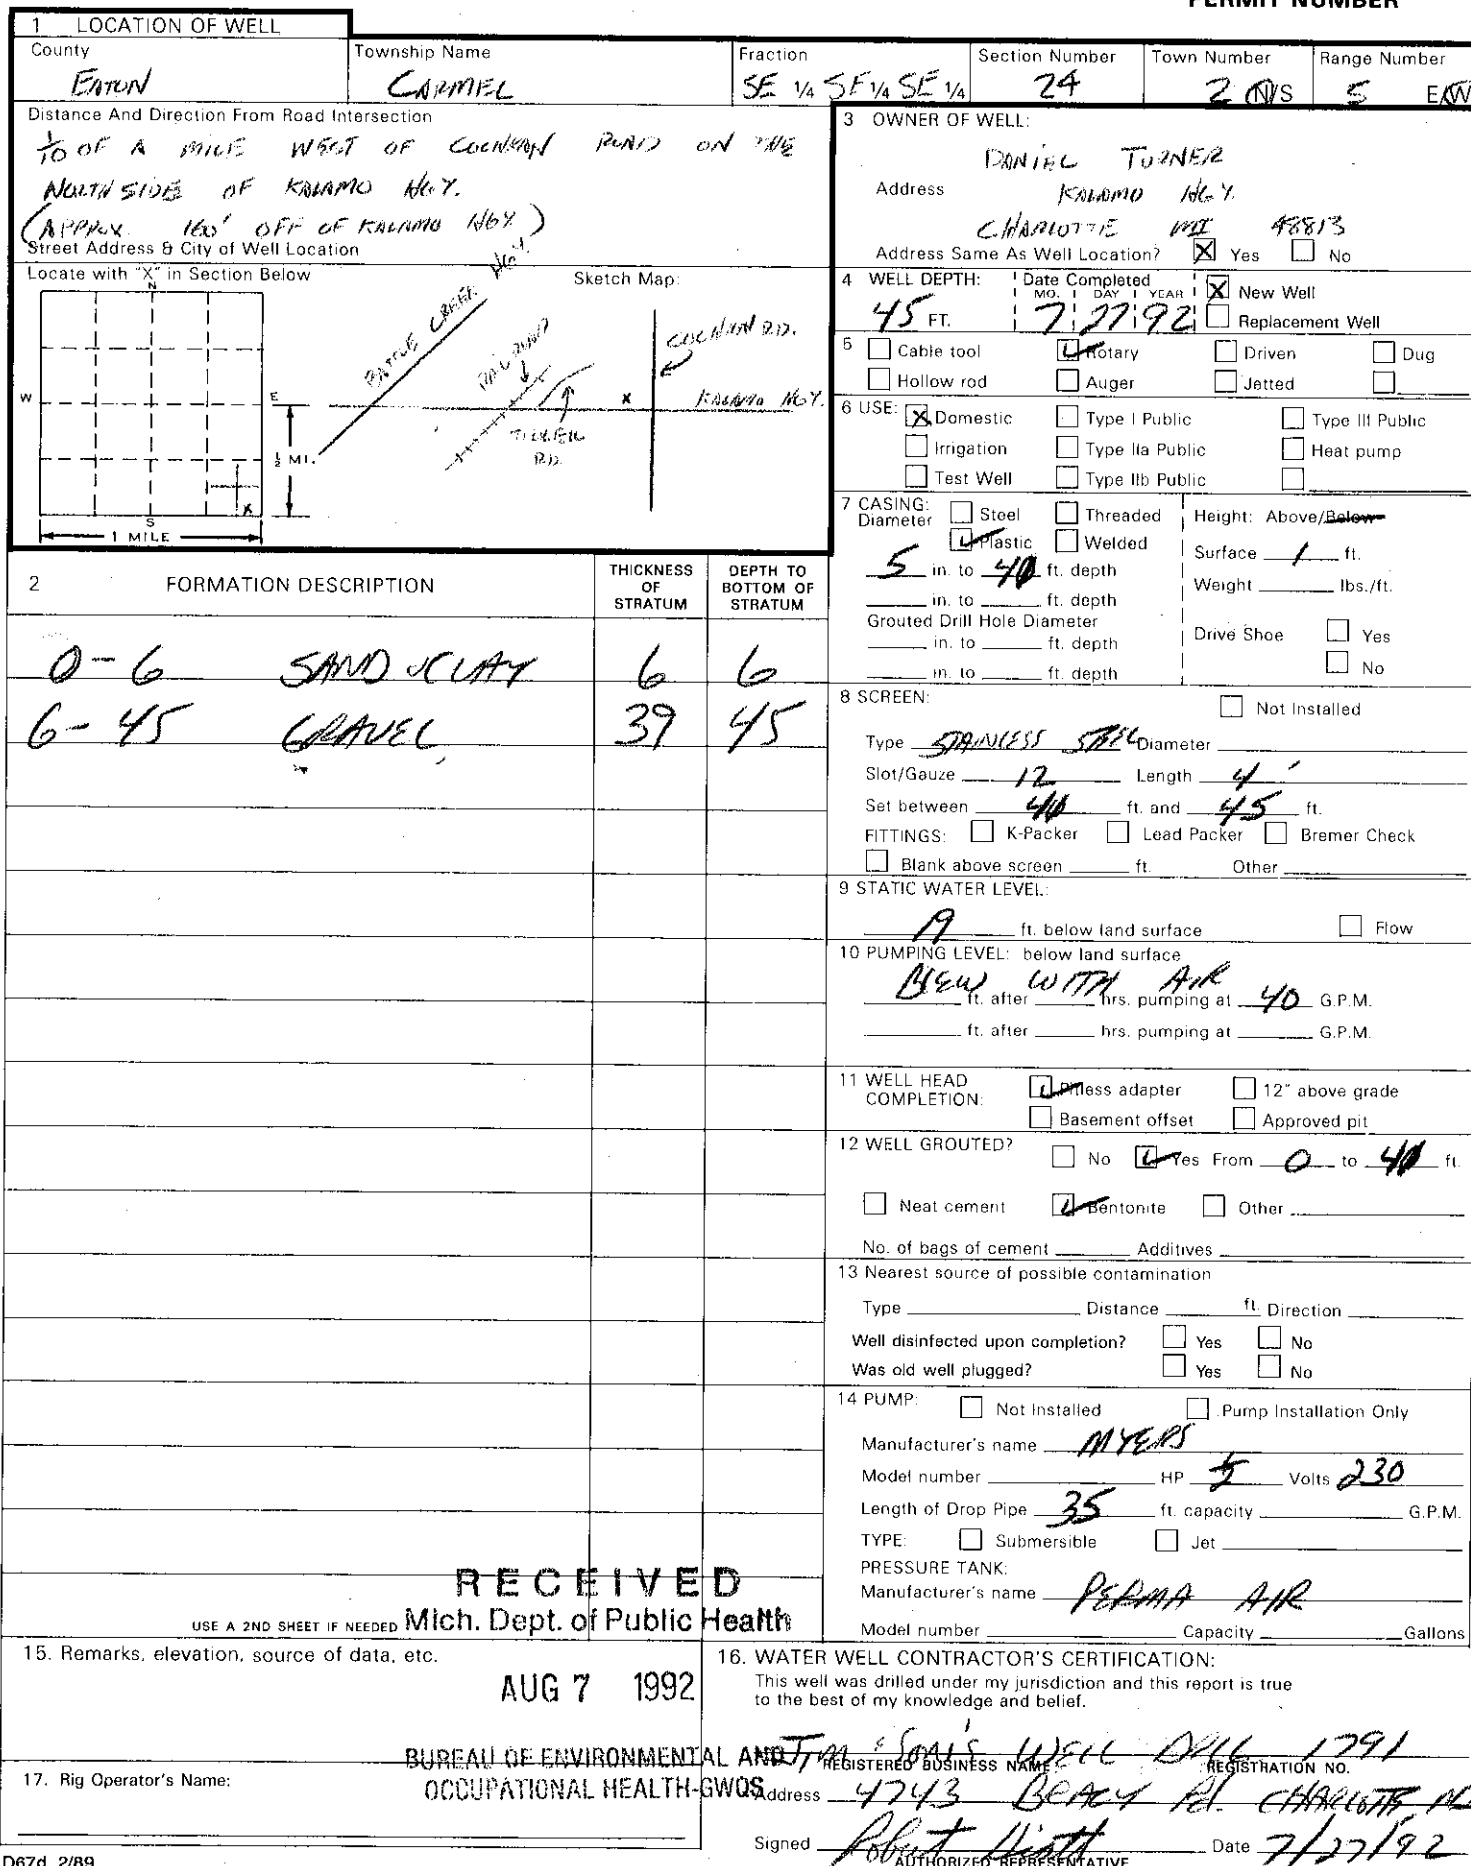 PERMIT NUMBER
1 LOCATION OF WELL
County
EATON
Township Name
CARMEL
Fraction
SE 1/4 SE 1/4 SE 1/4
Section Number
24
Town Number
2 N/S
Range Number
5 E/W
Distance And Direction From Road Intersection
1/10 OF A MILE WEST OF COCHRAN ROAD ON THE
NORTH SIDE OF KALAMO HGY.
(APPROX. 160' OFF OF KALAMO HGY.)
Street Address & City of Well Location
Locate with "X" in Section Below
Sketch Map:
N
W
E
S
1/2 MI.
1 MILE
X
BATTLE CREEK HGY.
RAILROAD
COCHRAN RD.
X
KALAMO HGY.
RD.
3 OWNER OF WELL:
DANIEL TURNER
Address KALAMO HGY.
CHARLOTTE MI 48813
Address Same As Well Location? X Yes No
4 WELL DEPTH:
45 FT.
Date Completed
MO. DAY YEAR
7 27 92
X New Well
Replacement Well
5 Cable tool Rotary Driven Dug
Hollow rod Auger Jetted
6 USE: X Domestic Type I Public Type III Public
Irrigation Type IIa Public Heat pump
Test Well Type IIb Public
7 CASING:
Diameter
Steel Threaded
Plastic Welded
5 in. to 41 ft. depth
in. to ft. depth
Grouted Drill Hole Diameter
in. to ft. depth
in. to ft. depth
Height: Above/Below
Surface 1 ft.
Weight lbs./ft.
Drive Shoe Yes
No
2 FORMATION DESCRIPTION
THICKNESS OF STRATUM
DEPTH TO BOTTOM OF STRATUM
0-6 SAND & CLAY 6 6
6-45 GRAVEL 39 45
8 SCREEN:
Not Installed
Type STAINLESS STEEL Diameter
Slot/Gauze 12 Length 4'
Set between 41 ft. and 45 ft.
FITTINGS: K-Packer Lead Packer Bremer Check
Blank above screen ft. Other
9 STATIC WATER LEVEL:
19 ft. below land surface Flow
10 PUMPING LEVEL: below land surface
BLEW WITH AIR
ft. after hrs. pumping at 40 G.P.M.
ft. after hrs. pumping at G.P.M.
11 WELL HEAD COMPLETION:
Pitless adapter 12" above grade
Basement offset Approved pit
12 WELL GROUTED?
No Yes From 0 to 41 ft.
Neat cement Bentonite Other
No. of bags of cement Additives
13 Nearest source of possible contamination
Type Distance ft. Direction
Well disinfected upon completion? Yes No
Was old well plugged? Yes No
14 PUMP: Not Installed Pump Installation Only
Manufacturer's name MYERS
Model number HP 1/2 Volts 230
Length of Drop Pipe 35 ft. capacity G.P.M.
TYPE: Submersible Jet
PRESSURE TANK:
Manufacturer's name PERMA AIR
Model number Capacity Gallons
USE A 2ND SHEET IF NEEDED
RECEIVED
Mich. Dept. of Public Health
AUG 7 1992
BUREAU OF ENVIRONMENTAL AND
OCCUPATIONAL HEALTH-GWQS
15. Remarks, elevation, source of data, etc.
17. Rig Operator's Name:
16. WATER WELL CONTRACTOR'S CERTIFICATION:
This well was drilled under my jurisdiction and this report is true
to the best of my knowledge and belief.
Jim & Son's WELL DRLG 1791
REGISTERED BUSINESS NAME REGISTRATION NO.
Address 4743 Rd. CHARLOTTE, MI
Signed Robert
Date 7/27/92
AUTHORIZED REPRESENTATIVE
D67d 2/89